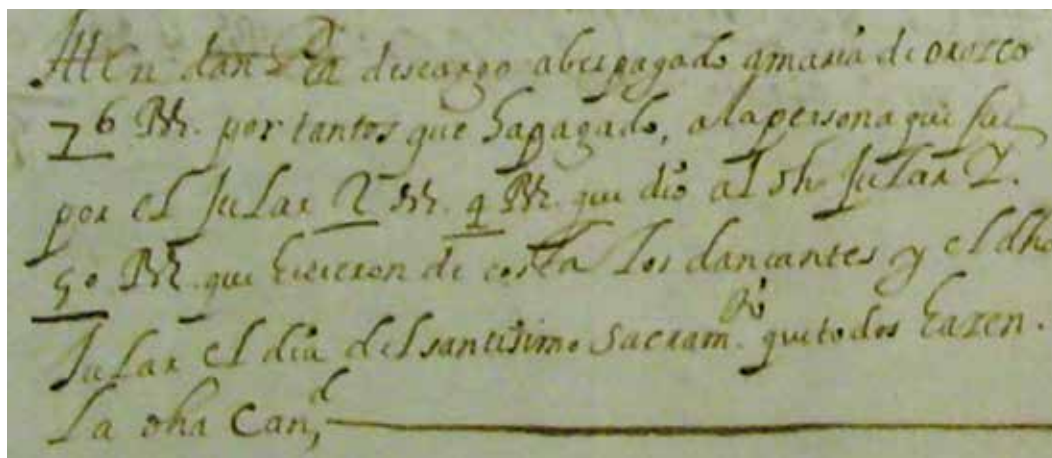 Itten dan en descargo aber pagado a maria de orozco
76 Rs. por tantos que ha pagado, a la persona que fue
por el Julax 2 Rs. 4 Rs. que dio al dho Julax Y.
50 Rs. que hicieron de costa los danzantes y el dho
Julax el dia del santisimo sacramto. que todos hazen.
La dha Cand,